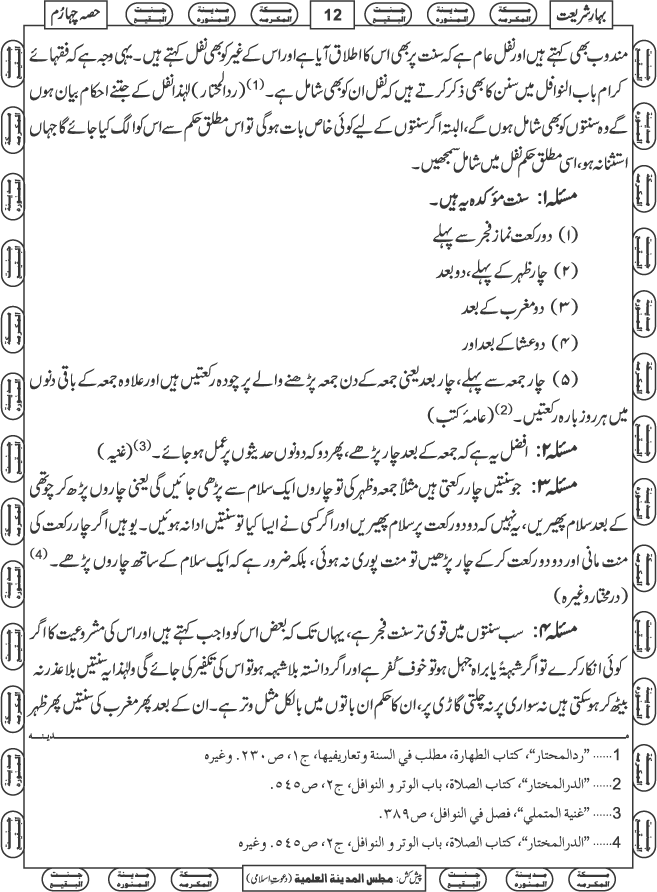 بہارِ شریعت
12
حصہ چہارم
مندوب بھی کہتے ہیں اور نفل عام ہے کہ سنت پر بھی اس کا اطلاق آیا ہے اور اس کے غیر کو بھی نفل کہتے ہیں۔ یہی وجہ ہے کہ فقہائے
کرام باب النوافل میں سنن کا بھی ذکر کرتے ہیں کہ نفل ان کو بھی شامل ہے۔(1) (ردالمحتار) لہٰذا نفل کے جتنے احکام بیان ہوں
گے وہ سنتوں کو بھی شامل ہوں گے، البتہ اگر سنتوں کے لیے کوئی خاص بات ہوگی تو اس مطلق حکم سے اس کو الگ کیا جائے گا جہاں
استثنا نہ ہو، اسی مطلق حکم نفل میں شامل سمجھیں۔
مسئلہ ۱: سنت مؤکدہ یہ ہیں۔
(۱) دو رکعت نماز فجر سے پہلے
(۲) چار ظہر کے پہلے، دو بعد
(۳) دو مغرب کے بعد
(۴) دو عشا کے بعد اور
(۵) چار جمعہ سے پہلے، چار بعد یعنی جمعہ کے دن جمعہ پڑھنے والے پر چودہ رکعتیں ہیں اور علاوہ جمعہ کے باقی دنوں
میں ہر روز بارہ رکعتیں۔(2) (عامۂ کتب)
مسئلہ ۲: افضل یہ ہے کہ جمعہ کے بعد چار پڑھے، پھر دو کہ دونوں حدیثوں پر عمل ہو جائے۔(3) (غنیہ)
مسئلہ ۳: جو سنتیں چار رکعتی ہیں مثلاً جمعہ و ظہر کی تو چاروں ایک سلام سے پڑھی جائیں گی یعنی چاروں پڑھ کر چوتھی
کے بعد سلام پھیریں، یہ نہیں کہ دو دو رکعت پر سلام پھیریں اور اگر کسی نے ایسا کیا تو سنتیں ادا نہ ہوئیں۔ یوہیں اگر چار رکعت کی
منت مانی اور دو دو رکعت کر کے چار پڑھیں تو منت پوری نہ ہوئی، بلکہ ضرور ہے کہ ایک سلام کے ساتھ چاروں پڑھے۔(4)
(درمختار وغیرہ)
مسئلہ ۴: سب سنتوں میں قوی تر سنت فجر ہے، یہاں تک کہ بعض اس کو واجب کہتے ہیں اور اس کی مشروعیت کا اگر
کوئی انکار کرے تو اگر شبہۃً یا براہ جہل ہو تو خوف کُفر ہے اور اگر دانستہ بلا شبہہ ہو تو اس کی تکفیر کی جائے گی ولہٰذا یہ سنتیں بلا عذر نہ
بیٹھ کر ہو سکتی ہیں نہ سواری پر نہ چلتی گاڑی پر، ان کا حکم ان باتوں میں بالکل مثل وتر ہے۔ ان کے بعد پھر مغرب کی سنتیں پھر ظہر
1...... ”ردالمحتار“، کتاب الطھارۃ، مطلب في السنۃ وتعاریفھا، ج۱، ص۲۳۰. وغیرہ
2...... ”الدرالمختار“، کتاب الصلاۃ، باب الوتر و النوافل، ج۲، ص٥٤٥.
3...... ”غنیۃ المتملي“، فصل في النوافل، ص۳۸۹.
4...... ”الدرالمختار“، کتاب الصلاۃ، باب الوتر و النوافل، ج۲، ص٥٤٥. وغیرہ
پیش کش: مجلس المدینۃ العلمیۃ (دعوتِ اسلامی)